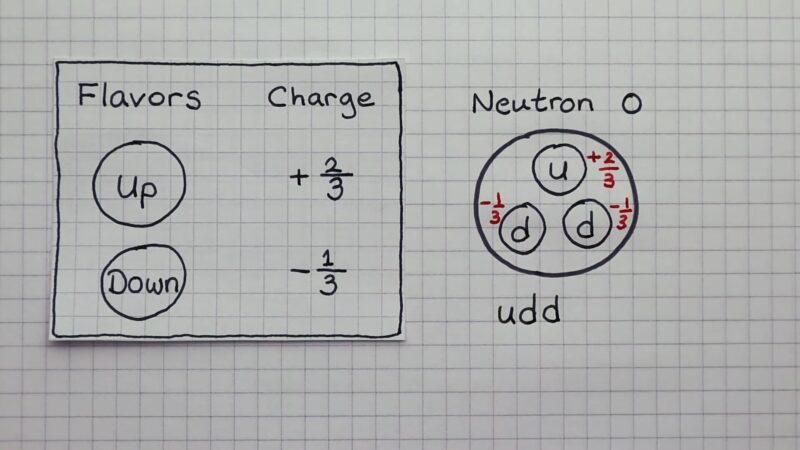 Flavors Charge
Up +2/3
Down -1/3
Neutron 0
u +2/3
-1/3 d d -1/3
udd